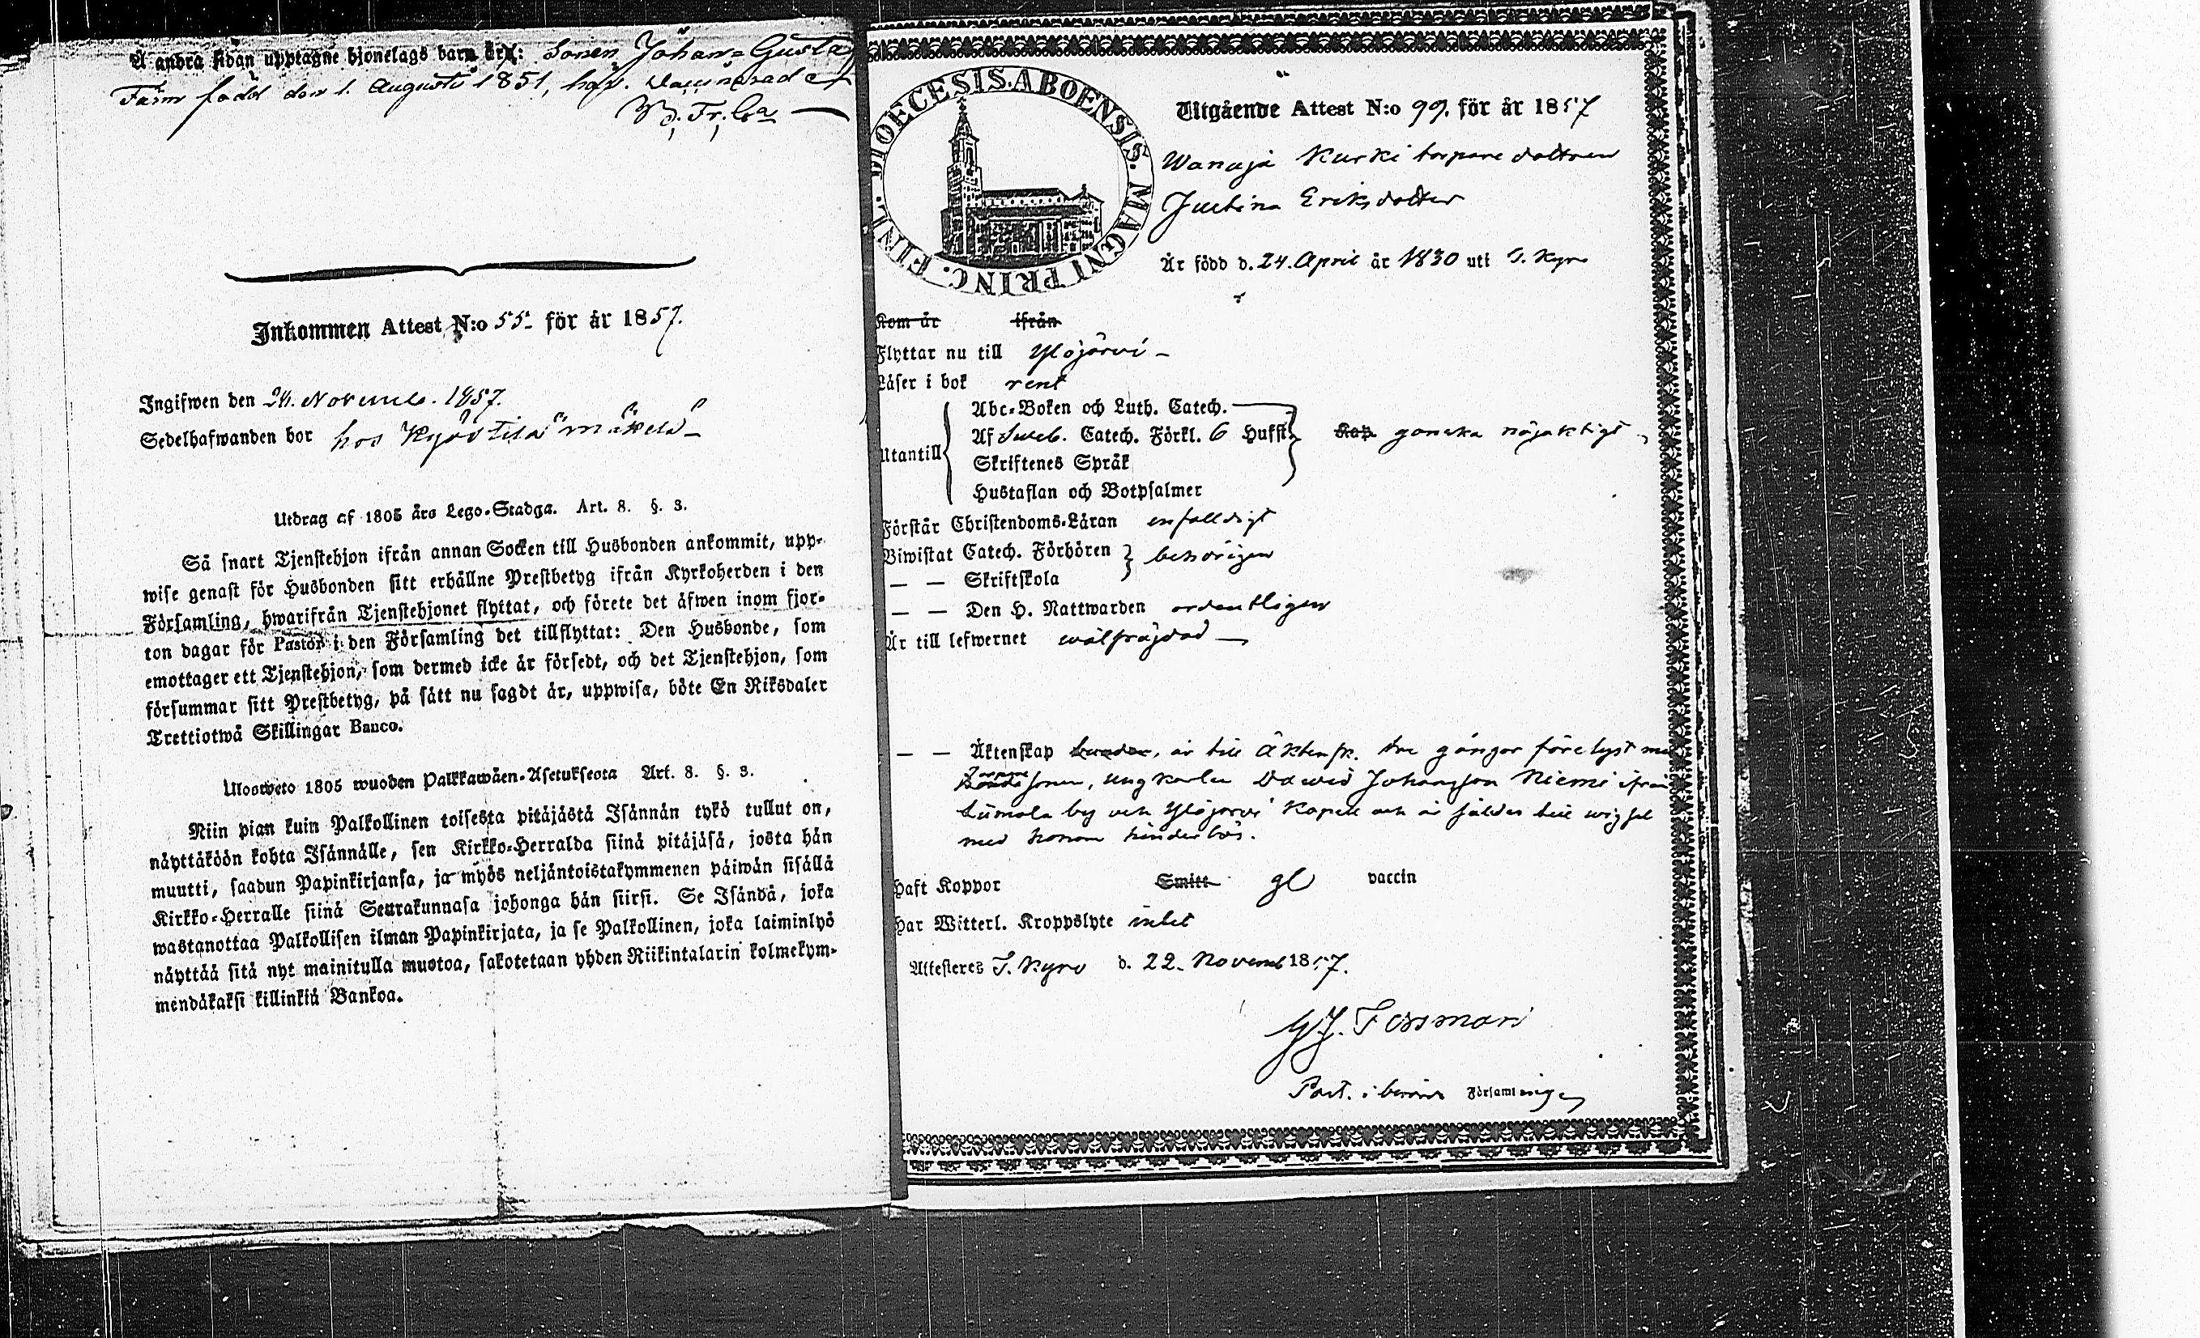 Å andra sidan upptagne hjonelags barn äro: Sonen Johan Gustaf
född den 1. Augusti 1851, har.
Inkommen Attest N:o 55 för år 1857.
Ingifwen den 24. Novemb. 1857.
Sedelhafwanden bor hos Kyöstilä Mäkelä
Utdrag af 1805 års Lego-Stadga. Art. 8. §. 3.
Så snart Tjenstehjon ifrån annan Socken till Husbonden ankommit, upp-
wise genast för Husbonden sitt erhållne Prestbetyg ifrån Kyrkoherden i den
Församling, hwarifrån Tjenstehjonet flyttat, och förete det äfwen inom fjor-
ton dagar för Pastor i den Församling det tillflyttat: Den Husbonde, som
emottager ett Tjenstehjon, som dermed icke är försedt, och det Tjenstehjon, som
försummar sitt Prestbetyg, på sätt nu sagdt är, uppwisa, böte En Riksdaler
Trettiotwå Skillingar Banco.
Ulosweto 1805 wuoden Palkkawäen-Asetuksesta Art. 8. §. 3.
Niin pian kuin Palkollinen toisesta pitäjästä Isännän tykö tullut on,
näyttäköön kohta Isännälle, sen Kirkko-Herralda siinä pitäjäsä, josta hän
muutti, saadun Papinkirjansa, ja myös neljäntoistakymmenen päiwän sisällä
Kirkko-Herralle siinä Seurakunnasa johonga hän siirsi. Se Isändä, joka
wastanottaa Palkollisen ilman Papinkirjata, ja se Palkollinen, joka laiminlyö
näyttää sitä nyt mainitulla muotoa, sakotetaan yhden Riikintalarin kolmekym-
mendäkaksi killinkiä Bankoa.
DIOECESIS. ABOENSIS. MAGNI PRINC. FINL.
Utgående Attest N:o 99. för år 1857
Wanaja Kurki torpare dottren
Justina Eriksdotter
Är född d. 24. April år 1830 uti T. Kyro
Kom år ifrån
Flyttar nu till Ylöjärvi
Läser i bok rent
Abc-Boken och Luth. Catech.
Utantill Af Sweb. Catech. Förkl. 6 Hufst. ganska nöjaktigt
Skriftenes Språk
Hustaflan och Botpsalmer
Förstår Christendoms-Läran enfalldigt
Biwistat Catech. Förhören behörigen
— — Skriftskola
— — Den H. Nattwarden ordentligen
Är till lefwernet wälfräjdad
— — Äktenskap är till Äktensk. tre gångor förelyst med
sonen, ungkarlen Dawid Johansson Niemi ifrån
by och Ylöjärvi Kapell och är således till wigsel
med honom hinderlös.
Haft Koppor Smitt gl vaccin
Har Witterl. Kroppslyte intet
Attesteres T. Kyro d. 22. Novemb 1857.
Forsman
Past. i Församlingen